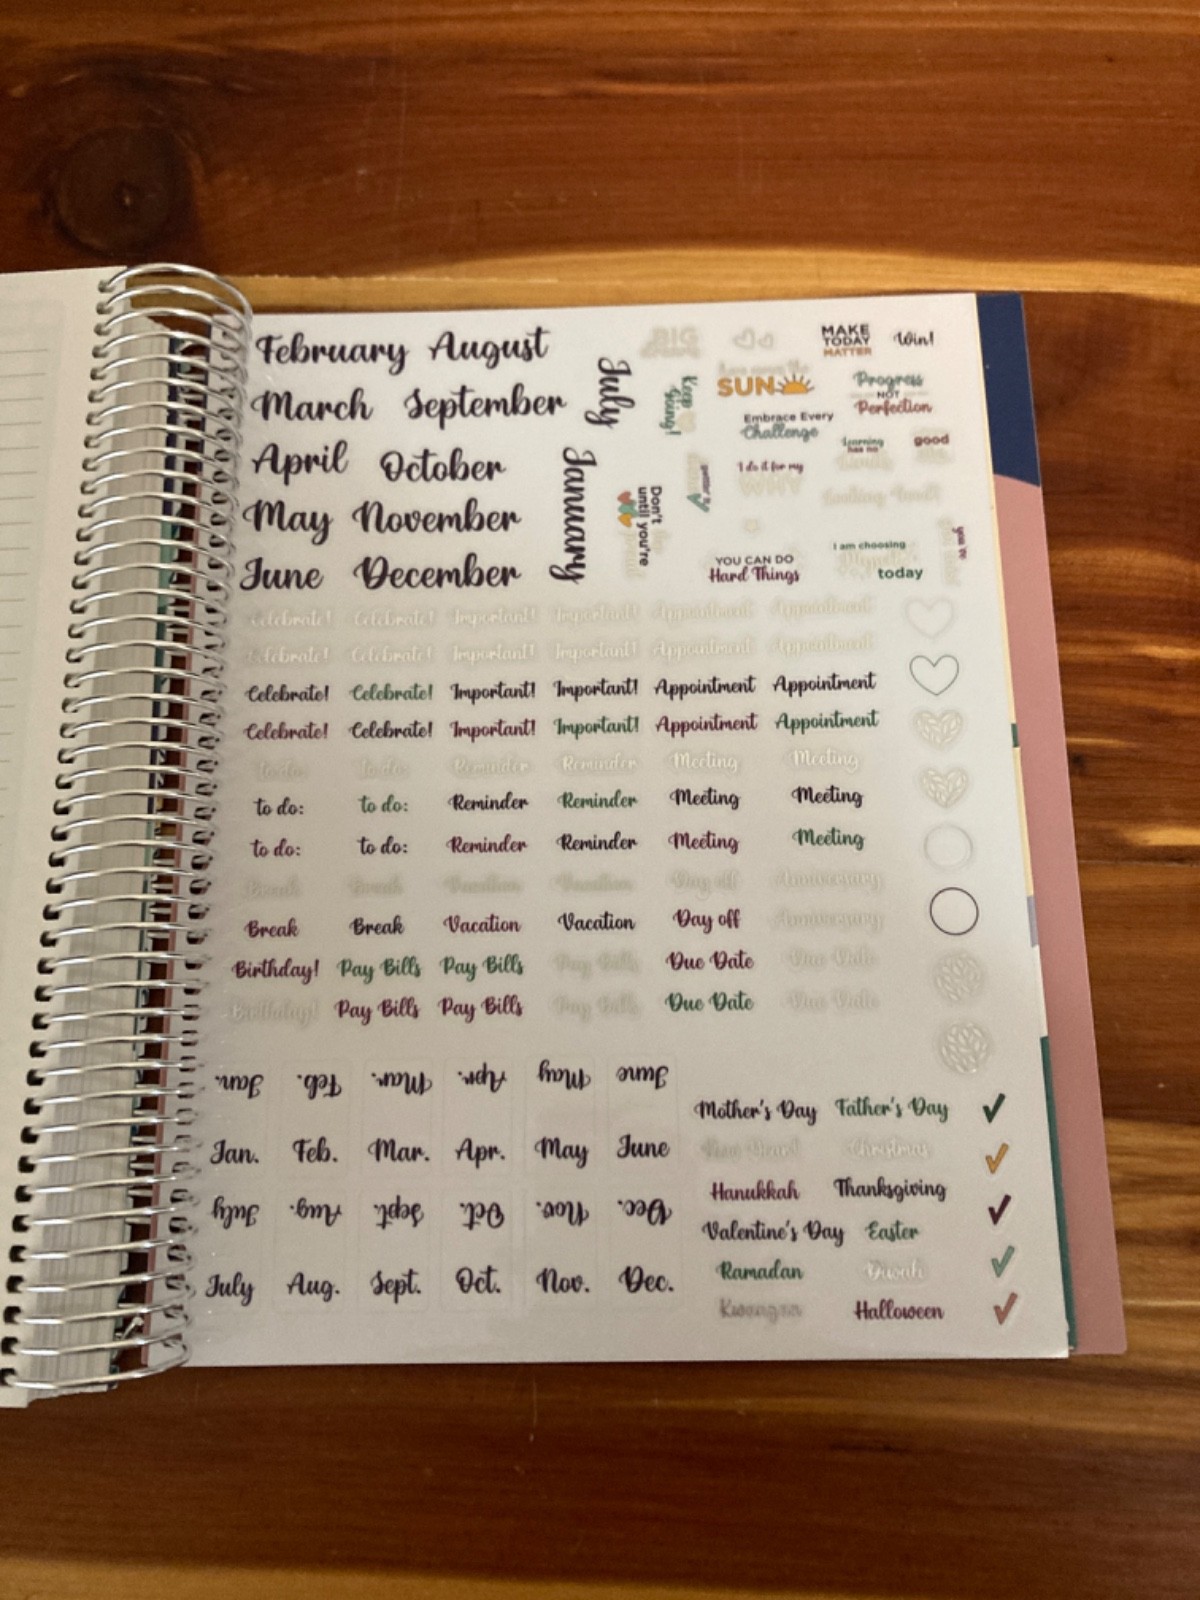 February August
March September
April October
May November
June December
July
January
BIG
MAKE
TODAY
MATTER
Win!
Keep
Going!
SUN
Progress
NOT
Perfection
Embrace Every
Challenge
learning
has no
good
I do it for my
Don't
until you're
YOU CAN DO
Hard Things
I am choosing
today
you're
Celebrate! Celebrate! Important! Important! Appointment Appointment
Celebrate! Celebrate! Important! Important! Appointment Appointment
Celebrate! Celebrate! Important! Important! Appointment Appointment
Celebrate! Celebrate! Important! Important! Appointment Appointment
to do: to do: Reminder Reminder Meeting Meeting
to do: to do: Reminder Reminder Meeting Meeting
to do: to do: Reminder Reminder Meeting Meeting
Break Break Vacation Vacation Day off Anniversary
Break Break Vacation Vacation Day off Anniversary
Birthday! Pay Bills Pay Bills Pay Bills Due Date Due Date
Birthday! Pay Bills Pay Bills Pay Bills Due Date Due Date
Jan. Feb. Mar. Apr. May June
Jan. Feb. Mar. Apr. May June
July Aug. Sept. Oct. Nov. Dec.
July Aug. Sept. Oct. Nov. Dec.
Mother's Day Father's Day
Christmas
Hanukkah Thanksgiving
Valentine's Day Easter
Ramadan Diwali
Kwanzaa Halloween